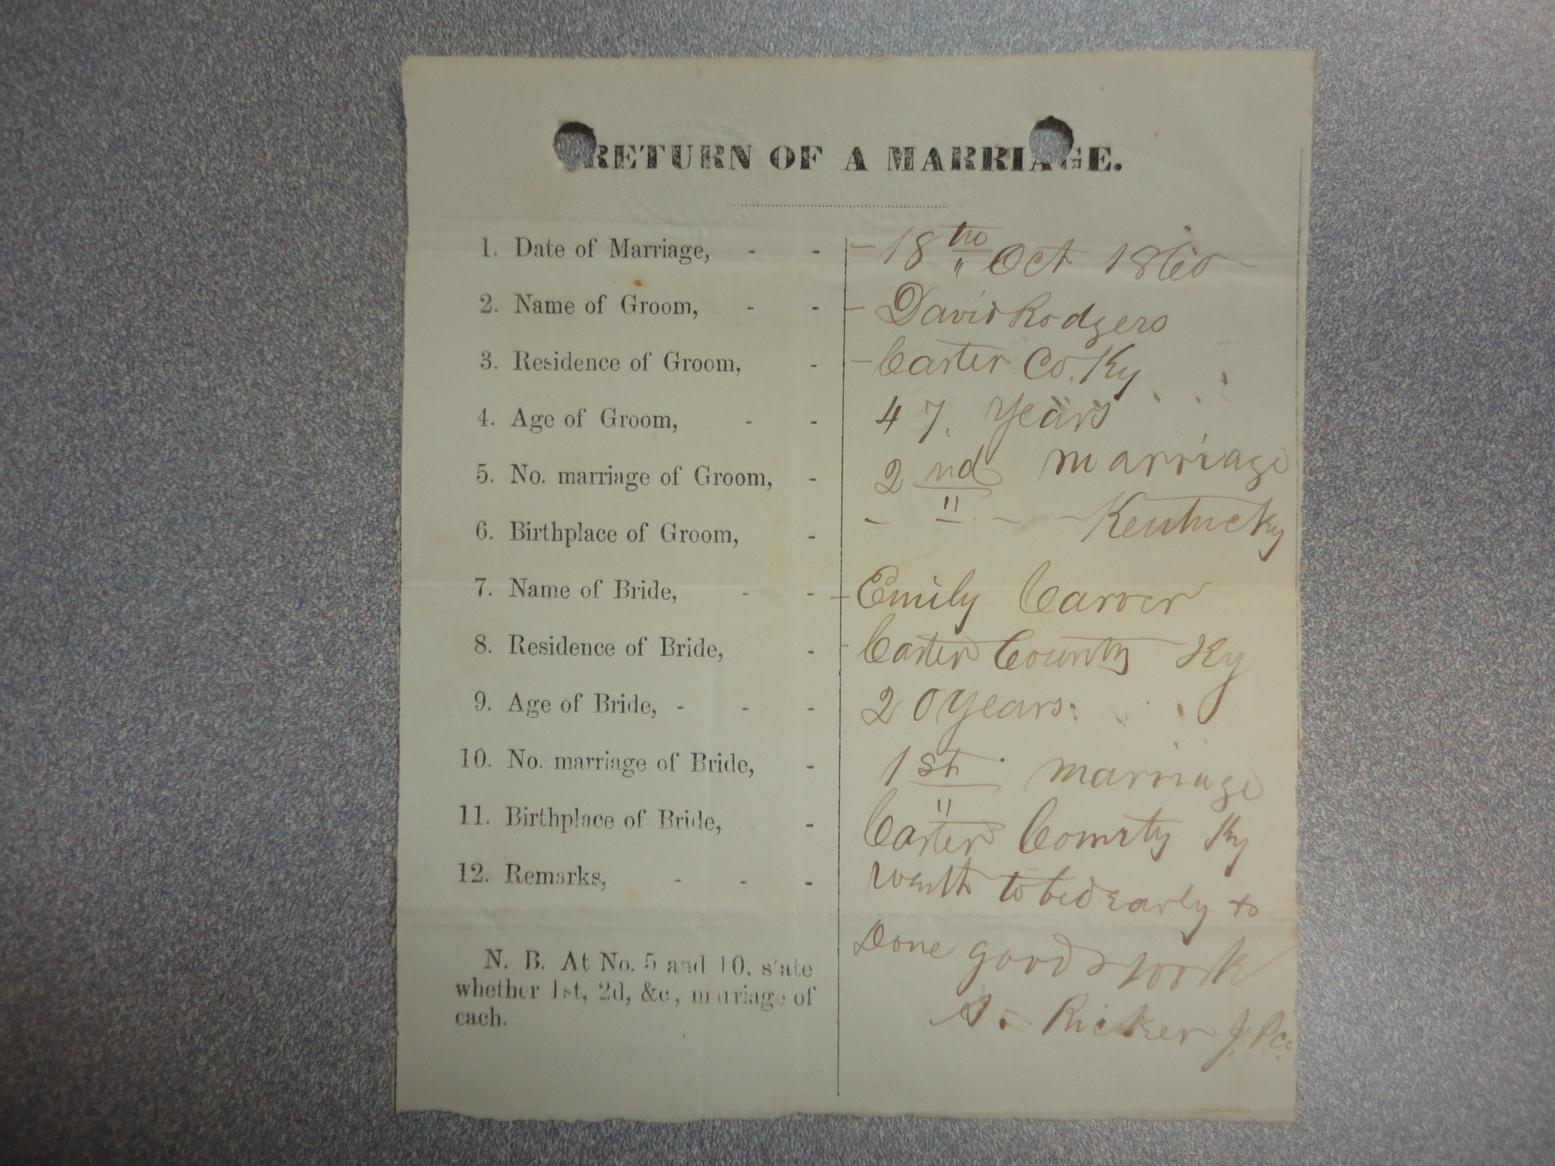 RETURN OF A MARRIAGE.
1. Date of Marriage, - - - 18th Oct 1860
2. Name of Groom, - - - David Rodgers
3. Residence of Groom, - - Carter Co. Ky
4. Age of Groom, - - 47. years
5. No. marriage of Groom, - 2nd marriage
6. Birthplace of Groom, - - " - - Kentucky
7. Name of Bride, - - - Emily Carver
8. Residence of Bride, - - Carter County Ky
9. Age of Bride, - - - 20 years.
10. No. marriage of Bride, - 1st marriage
11. Birthplace of Bride, - Carter County Ky
12. Remarks, - - - Wenth to bed early &
Done good work
N. B. At No. 5 and 10, state
whether 1st, 2d, &c., marriage of
each.
Ricker J.P.C.